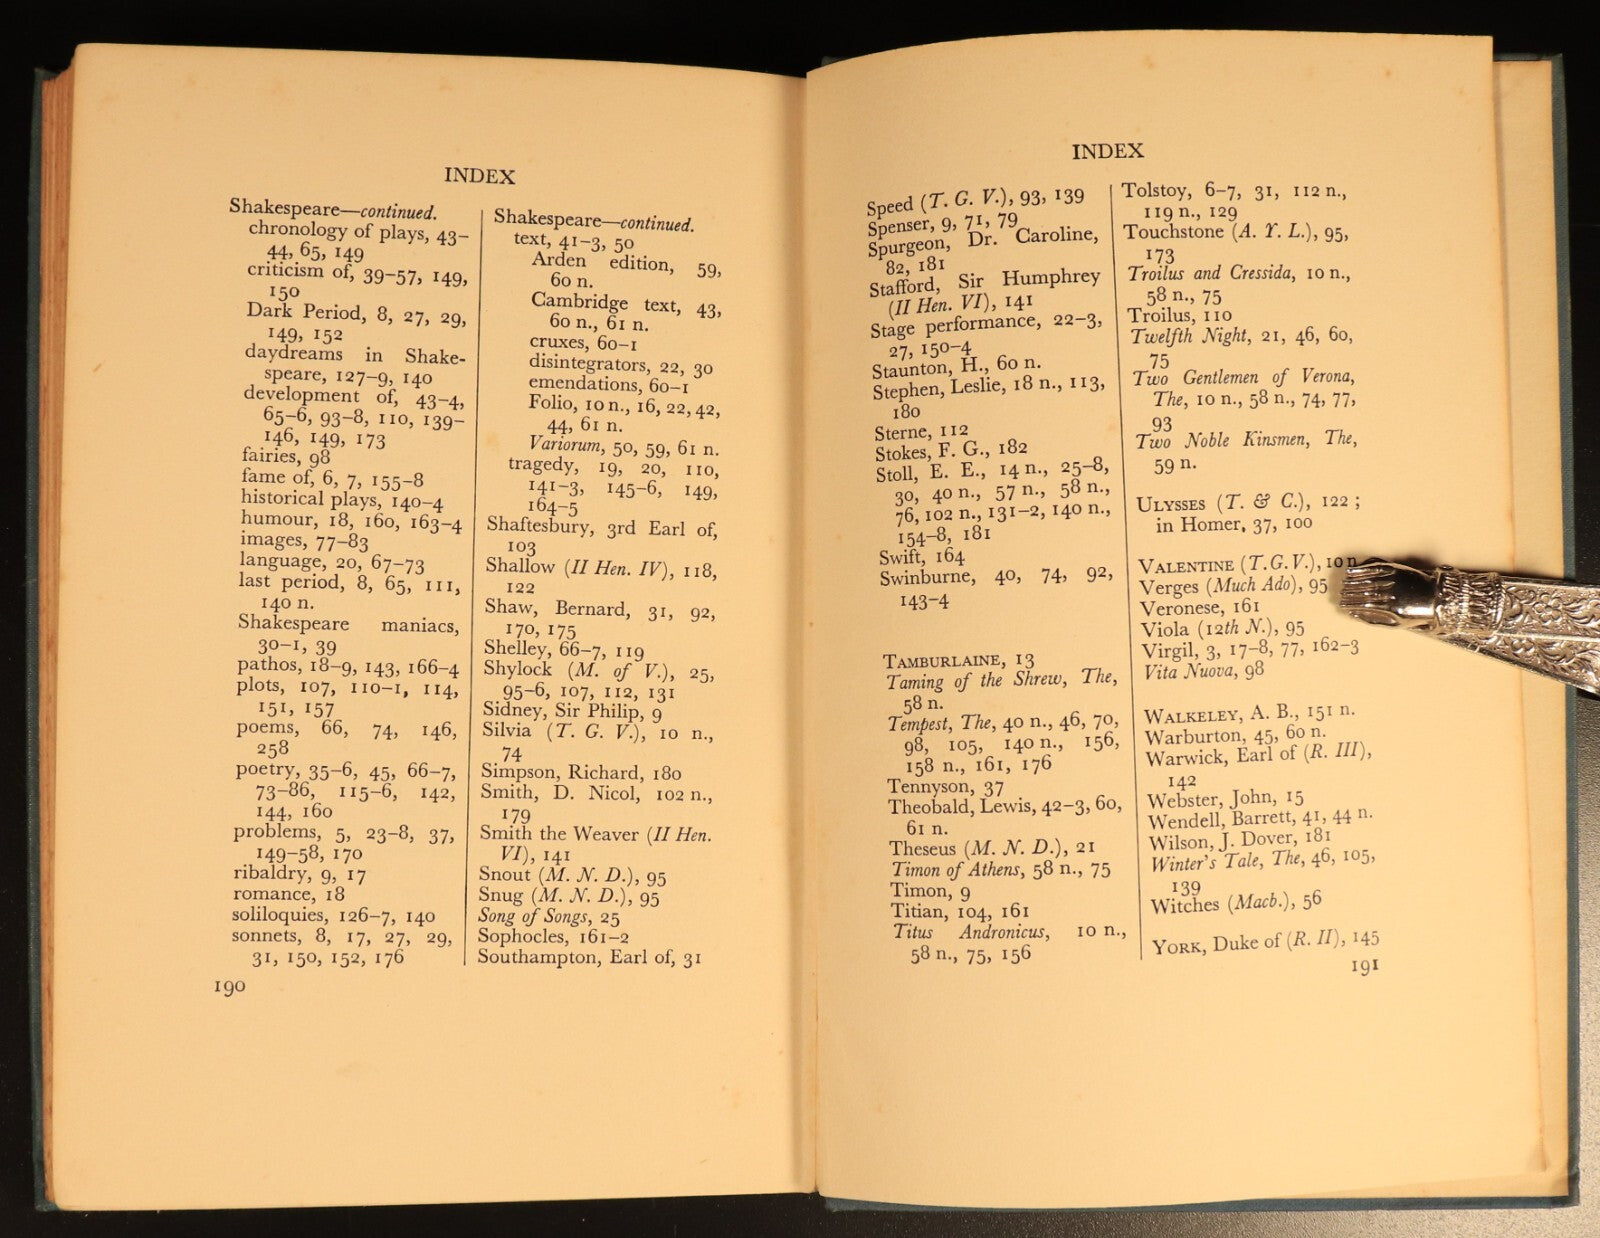 INDEX
Shakespeare—continued.
chronology of plays, 43–
44, 65, 149
criticism of, 39–57, 149,
150
Dark Period, 8, 27, 29,
149, 152
daydreams in Shake-
speare, 127–9, 140
development of, 43–4,
65–6, 93–8, 110, 139–
146, 149, 173
fairies, 98
fame of, 6, 7, 155–8
historical plays, 140–4
humour, 18, 160, 163–4
images, 77–83
language, 20, 67–73
last period, 8, 65, 111,
140 n.
Shakespeare maniacs,
30–1, 39
pathos, 18–9, 143, 166–4
plots, 107, 110–1, 114,
151, 157
poems, 66, 74, 146,
258
poetry, 35–6, 45, 66–7,
73–86, 115–6, 142,
144, 160
problems, 5, 23–8, 37,
149–58, 170
ribaldry, 9, 17
romance, 18
soliloquies, 126–7, 140
sonnets, 8, 17, 27, 29,
31, 150, 152, 176
Shakespeare—continued.
text, 41–3, 50
Arden edition, 59,
60 n.
Cambridge text, 43,
60 n., 61 n.
cruxes, 60–1
disintegrators, 22, 30
emendations, 60–1
Folio, 10 n., 16, 22, 42,
44, 61 n.
Variorum, 50, 59, 61 n.
tragedy, 19, 20, 110,
141–3, 145–6, 149,
164–5
Shaftesbury, 3rd Earl of,
103
Shallow (II Hen. IV), 118,
122
Shaw, Bernard, 31, 92,
170, 175
Shelley, 66–7, 119
Shylock (M. of V.), 25,
95–6, 107, 112, 131
Sidney, Sir Philip, 9
Silvia (T. G. V.), 10 n.,
74
Simpson, Richard, 180
Smith, D. Nicol, 102 n.,
179
Smith the Weaver (II Hen.
VI), 141
Snout (M. N. D.), 95
Snug (M. N. D.), 95
Song of Songs, 25
Sophocles, 161–2
Southampton, Earl of, 31
190
INDEX
Speed (T. G. V.), 93, 139
Spenser, 9, 71, 79
Spurgeon, Dr. Caroline,
82, 181
Stafford, Sir Humphrey
(II Hen. VI), 141
Stage performance, 22–3,
27, 150–4
Staunton, H., 60 n.
Stephen, Leslie, 18 n., 113,
180
Sterne, 112
Stokes, F. G., 182
Stoll, E. E., 14 n., 25–8,
30, 40 n., 57 n., 58 n.,
76, 102 n., 131–2, 140 n.,
154–8, 181
Swift, 164
Swinburne, 40, 74, 92,
143–4
TAMBURLAINE, 13
Taming of the Shrew, The,
58 n.
Tempest, The, 40 n., 46, 70,
98, 105, 140 n., 156,
158 n., 161, 176
Tennyson, 37
Theobald, Lewis, 42–3, 60,
61 n.
Theseus (M. N. D.), 21
Timon of Athens, 58 n., 75
Timon, 9
Titian, 104, 161
Titus Andronicus, 10 n.,
58 n., 75, 156
Tolstoy, 6–7, 31, 112 n.,
119 n., 129
Touchstone (A. Y. L.), 95,
173
Troilus and Cressida, 10 n.,
58 n., 75
Troilus, 110
Twelfth Night, 21, 46, 60,
75
Two Gentlemen of Verona,
The, 10 n., 58 n., 74, 77,
93
Two Noble Kinsmen, The,
59 n.
ULYSSES (T. & C.), 122 ;
in Homer, 37, 100
VALENTINE (T.G.V.), 10 n
Verges (Much Ado), 95
Veronese, 161
Viola (12th N.), 95
Virgil, 3, 17–8, 77, 162–3
Vita Nuova, 98
WALKELEY, A. B., 151 n.
Warburton, 45, 60 n.
Warwick, Earl of (R. III),
142
Webster, John, 15
Wendell, Barrett, 41, 44 n.
Wilson, J. Dover, 181
Winter's Tale, The, 46, 105,
139
Witches (Macb.), 56
YORK, Duke of (R. II), 145
191